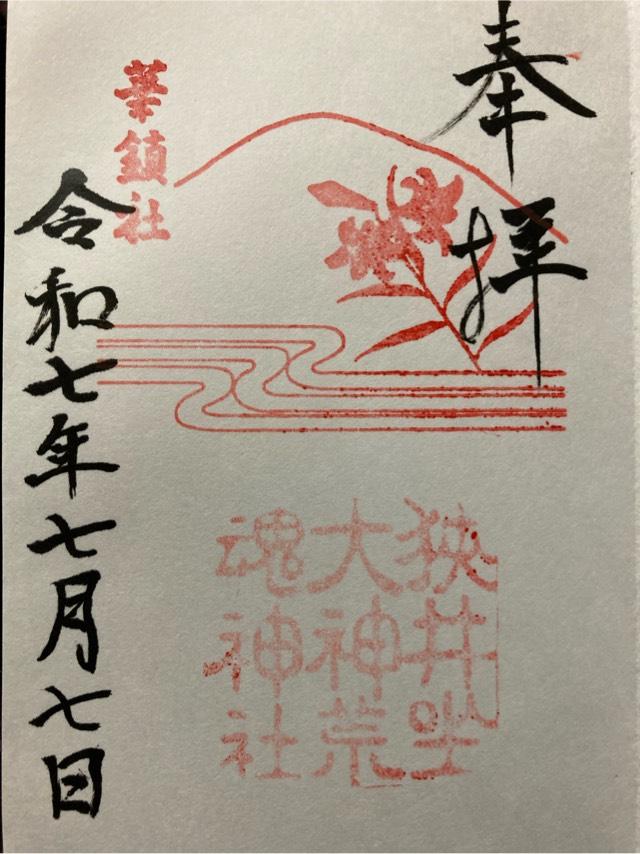 奉拝
狭井坐
大神荒
魂神社
華鎮社
令和七年七月七日